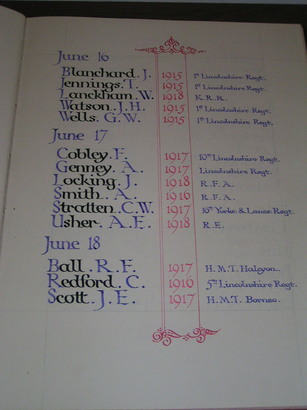 June 16
Blanchard. J. 1915 1st Lincolnshire Regt.
Jennings. T. 1915 1st Lincolnshire Regt.
Lanckham. W. 1918 K.R.R.
Watson. J.H. 1915 1st Lincolnshire Regt.
Wells. G.W. 1915 1st Lincolnshire Regt.
June 17
Cobley. F. 1917 10th Lincolnshire Regt.
Genney. A. 1917 Lincolnshire Regt.
Locking. J. 1918 R.F.A.
Smith. A. 1916 R.F.A.
Stratten. C.W. 1917 10th Yorks & Lancs Regt.
Usher. A.E. 1918 R.E.
June 18
Ball. R.F. 1917 H.M.T. Halcyon.
Redford. C. 1916 5th Lincolnshire Regt.
Scott. J.E. 1917 H.M.T. Borneo.